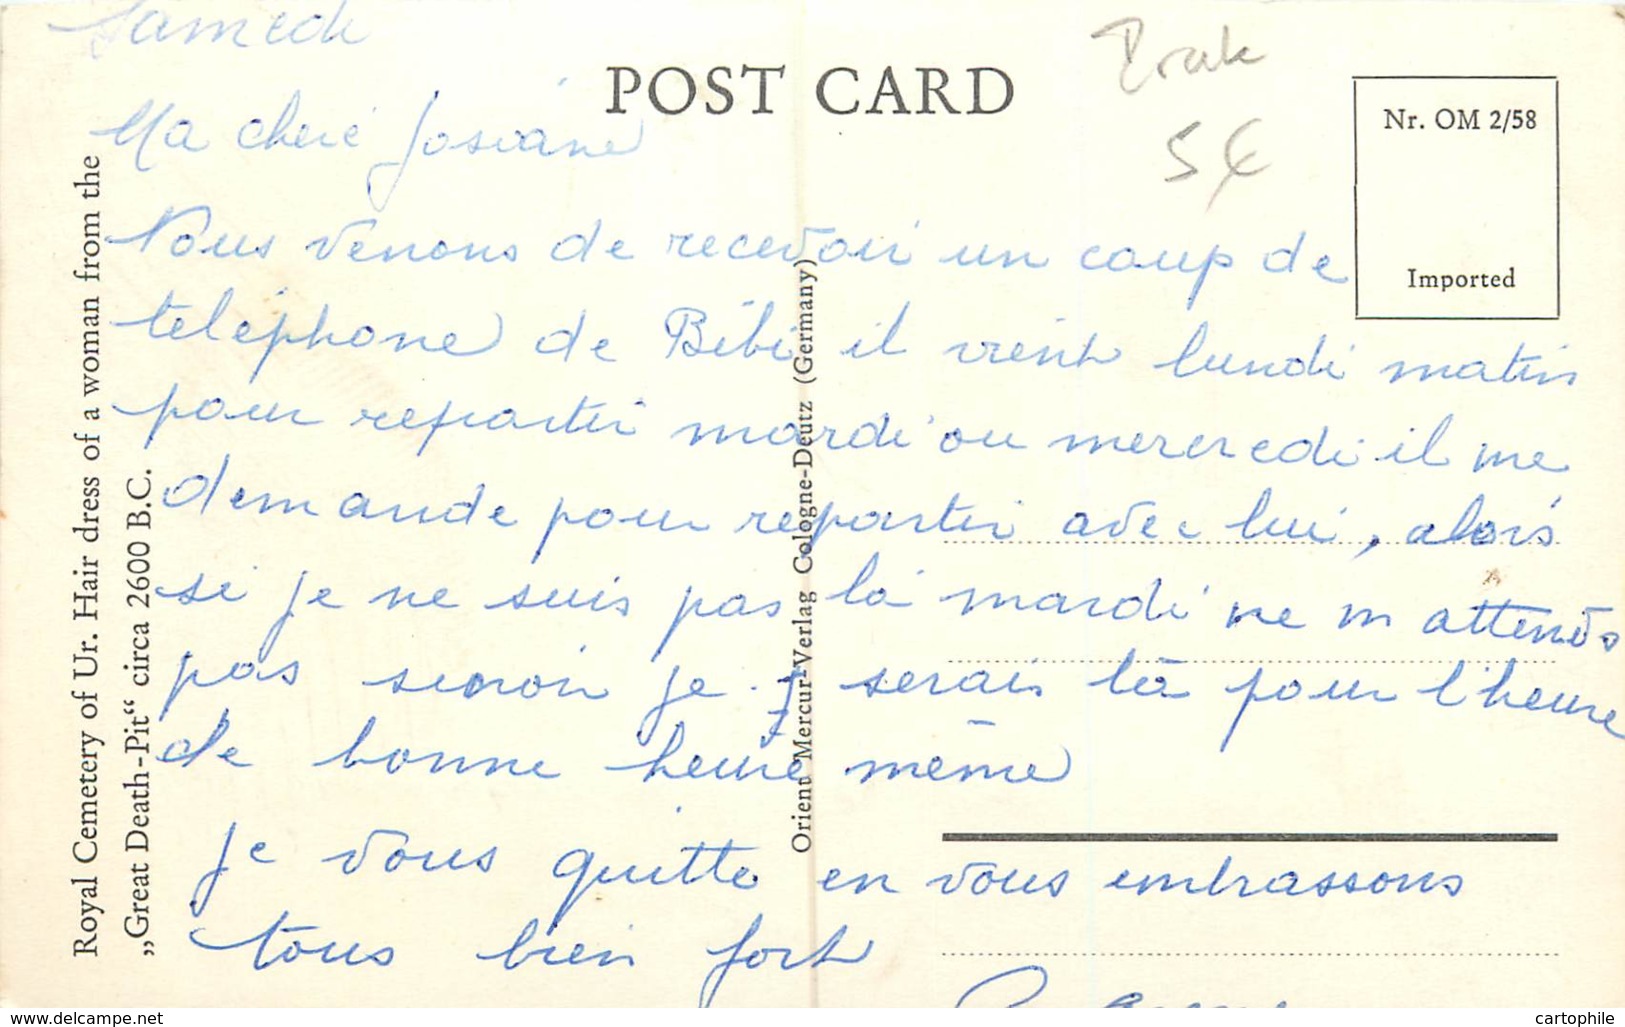 Samedi
POST CARD
Irak
5€
Nr. OM 2/58
Imported
Ma cheré Josiane
Nous venons de recevoir un coup de
teléphone de Bébé il vient lundi matin
pour repartir mardi ou mercredi il me
demande pour repartir avec lui, alors
si je ne suis pas là mardi ne m attends
pas sinon je serais là pour l'heure
de bonne heure même
je vous quitte en vous embrassons
tous bien fort
Royal Cemetery of Ur. Hair dress of a woman from the
„Great Death-Pit“ circa 2600 B.C.
Orient Mercur-Verlag Cologne-Deutz (Germany)
www.delcampe.net
cartophile